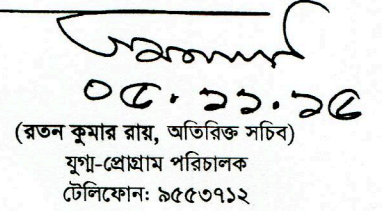 ০৫.১১.১৫
(রতন কুমার রায়, অতিরিক্ত সচিব)
যুগ্ম-প্রোগ্রাম পরিচালক
টেলিফোন: ৯৫৫৩৭১২